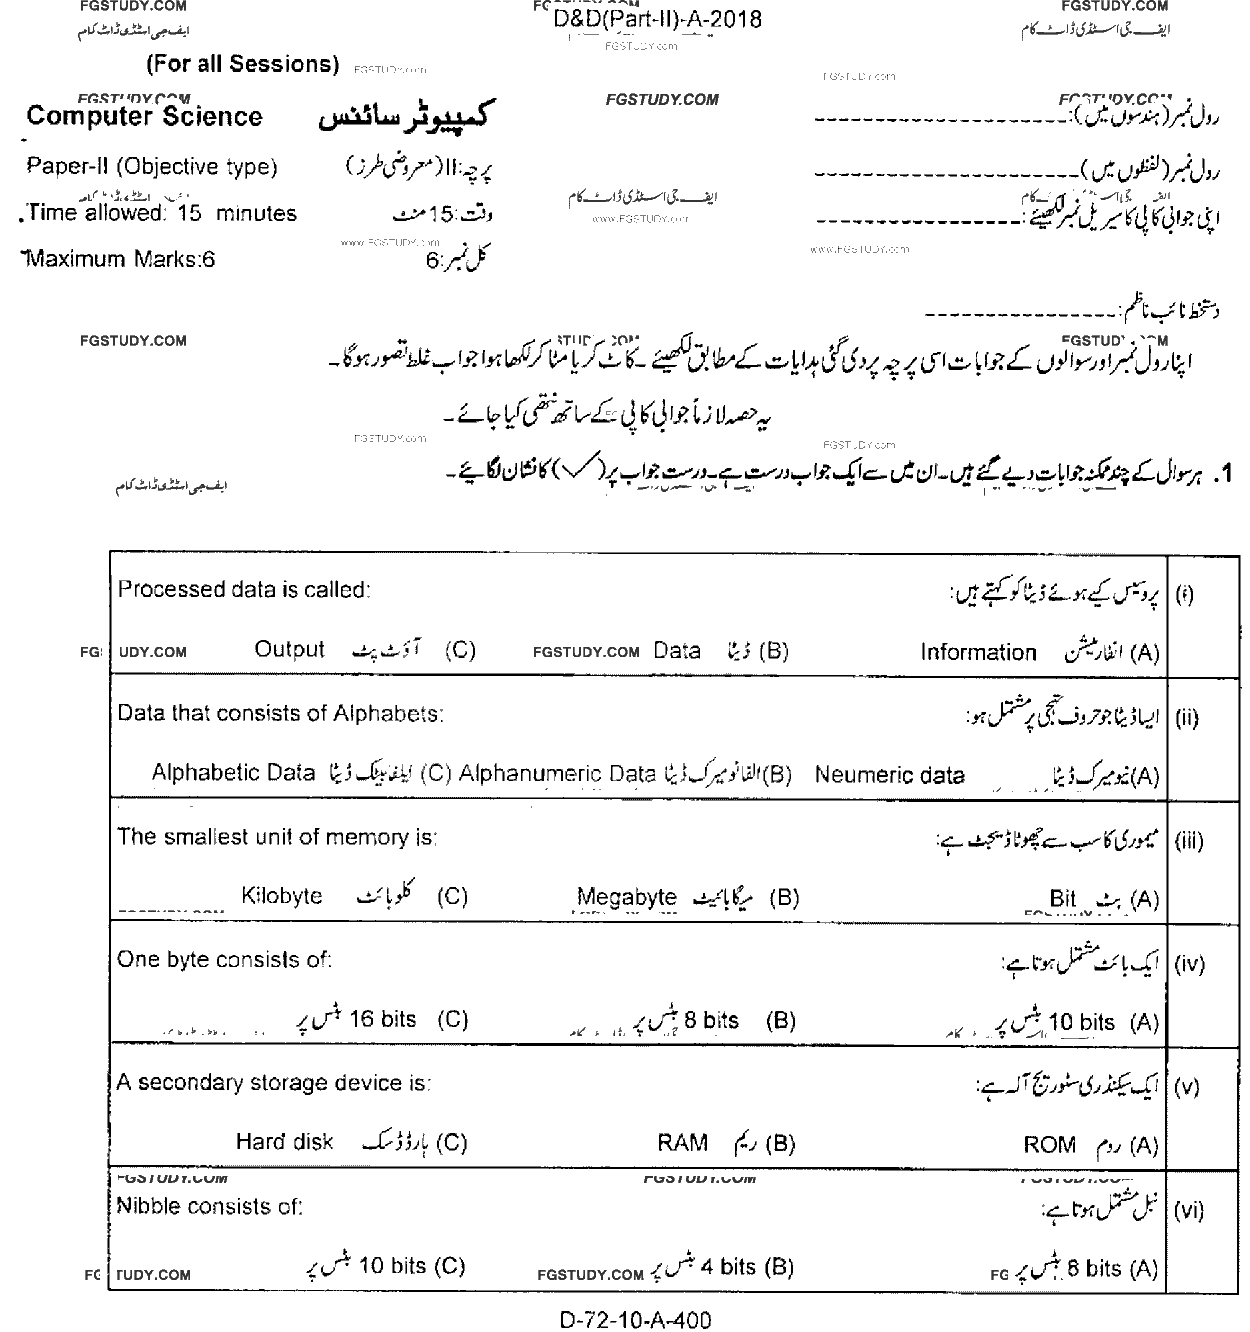 FGSTUDY.COM D&D(Part-II)-A-2018 FGSTUDY.COM
ایف جی اسٹڈی ڈاٹ کام FGSTUDY.com ایف جی اسٹڈی ڈاٹ کام
(For all Sessions) FGSTUDY.com FGSTUDY.com
FGSTUDY.COM FGSTUDY.COM FGSTUDY.COM
Computer Science کمپیوٹر سائنس رول نمبر (ہندسوں میں):
Paper-II (Objective type) پرچہ:II(معروضی طرز) رول نمبر (لفظوں میں)
ایف جی اسٹڈی ڈاٹ کام
Time allowed: 15 minutes وقت:15 منٹ www.FGSTUDY.com اپنی جوابی کاپی کا سیریل نمبر لکھیئے:
Maximum Marks:6 کل نمبر:6 www.FGSTUDY.com www.FGSTUDY.com
دستخط نائب ناظم:
FGSTUDY.COM FGSTUDY.COM
اپنا رول نمبر اور سوالوں کے جوابات اسی پرچہ پر دی گئی ہدایات کے مطابق لکھیئے ۔ کاٹ کر یا مٹا کر لکھا ہوا جواب غلط تصور ہوگا ۔
یہ حصہ لازماً جوابی کاپی کے ساتھ نتھی کیا جائے ۔
FGSTUDY.com FGSTUDY.com
1. ہر سوال کے چند ممکنہ جوابات دیے گئے ہیں۔ ان میں سے ایک جواب درست ہے۔ درست جواب پر (✓) کا نشان لگائیے ۔
ایف جی اسٹڈی ڈاٹ کام
Processed data is called: پروسیس کیے ہوئے ڈیٹا کو کہتے ہیں: (i)
FG UDY.COM Output آؤٹ پٹ (C) FGSTUDY.COM Data ڈیٹا (B) Information انفارمیشن (A)
Data that consists of Alphabets: ایسا ڈیٹا جو حروف تہجی پر مشتمل ہو: (ii)
Alphabetic Data ایلفابیٹک ڈیٹا (C) Alphanumeric Data الفانومیرک ڈیٹا (B) Neumeric data نیومیرک ڈیٹا (A)
The smallest unit of memory is: میموری کا سب سے چھوٹا ڈیجٹ ہے: (iii)
Kilobyte کلوبائٹ (C) Megabyte میگابائیٹ (B) Bit بٹ (A)
One byte consists of: ایک بائٹ مشتمل ہوتا ہے: (iv)
16 bits بٹس پر (C) 8 bits بٹس پر (B) 10 bits بٹس پر (A)
A secondary storage device is: ایک سیکنڈری سٹوریج آلہ ہے: (v)
Hard disk ہارڈ ڈسک (C) RAM ریم (B) ROM روم (A)
FGSTUDY.COM FGSTUDY.COM
Nibble consists of: نبل مشتمل ہوتا ہے: (vi)
FG TUDY.COM 10 bits بٹس پر (C) FGSTUDY.COM 4 bits بٹس پر (B) FG 8 bits بٹس پر (A)
D-72-10-A-400